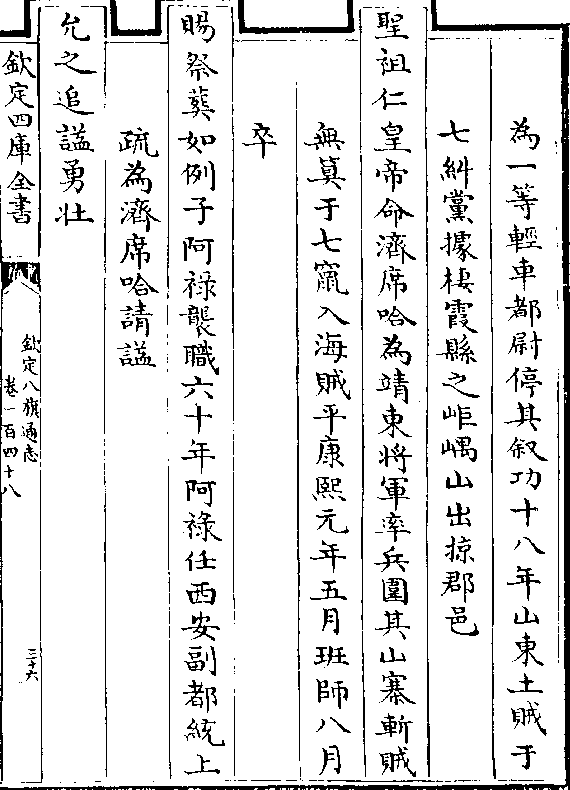 為一等輕車都尉停其敘功十八年山東土賊于
七糾黨據棲霞縣之岠嵎山出掠郡邑
聖祖仁皇帝命濟席哈為靖東將軍率兵圍其山寨斬賊
無算于七竄入海賊平康熙元年五月班師八月
卒
賜祭葬如例子阿祿襲職六十年阿祿任西安副都統上
疏為濟席哈請諡
允之追諡勇壯
欽定四庫全書
欽定八旗通志
卷一百四十八
三十六